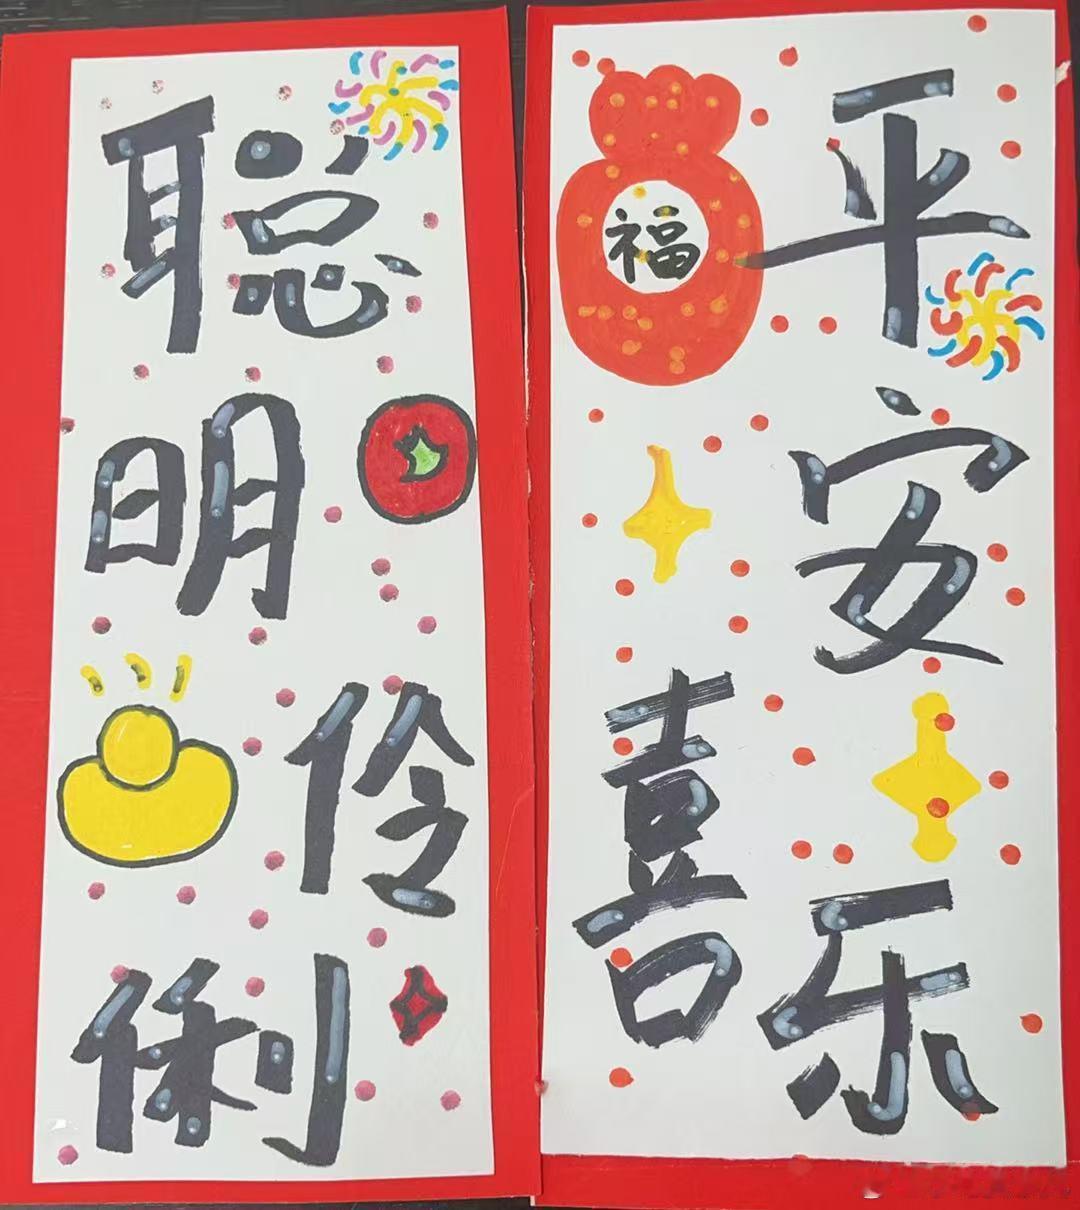 平安喜乐
福
聪明伶俐